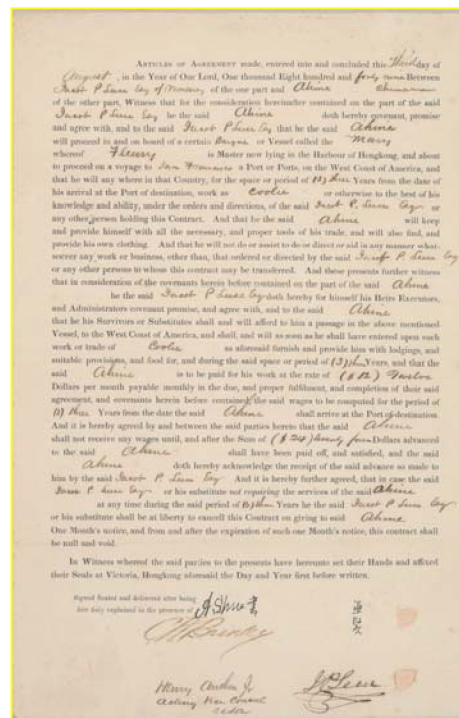 ARTICLES OF AGREEMENT made, entered into and concluded this Third day of
August, in the Year of Our Lord, One thousand Eight hundred and forty nine Between
Jacob P Leese Esq of Monterey of the one part and Ahine Chinaman
of the other part, Witness that for the consideration hereinafter contained on the part of the said
Jacob P Leese Esq he the said Ahine doth hereby covenant, promise
and agree with, and to the said Jacob P Leese Esq that he the said Ahine
will proceed in and on board of a certain Barque or Vessel called the Mary
whereof Fleury is Master now lying in the Harbour of Hongkong, and about
to proceed on a voyage to San Francisco a Port or Ports, on the West Coast of America, and
that he will any where in that Country, for the space or period of (3) three Years from the date of
his arrival at the Port of destination, work as Coolie or otherwise to the best of his
knowledge and ability, under the orders and directions, of the said Jacob P. Leese Esqr or
any other person holding this Contract. And that he the said Ahine will keep
and provide himself with all the necessary, and proper tools of his trade, and will also find, and
provide his own clothing. And that he will not do or assist to do or direct or aid in any manner what-
soever any work or business, other than, that ordered or directed by the said Jacob P Leese Esq
or any other persons to whom this contract may be transferred. And these presents further witness
that in consideration of the covenants herein before contained on the part of the said Ahine
he the said Jacob P Leese Esq doth hereby for himself his Heirs Executors,
and Administrators covenant promise, and agree with, and to the said Ahine
that he his Survivors or Substitutes shall and will afford to him a passage in the above mentioned
Vessel, to the West Coast of America, and shall, and will as soon as he shall have entered upon such
work or trade of Coolie as aforesaid furnish and provide him with lodgings, and
suitable provisions, and food for, and during the said space or period of (3) three Years, and that the
said Ahine is to be paid for his work at the rate of ($12) Twelve
Dollars per month payable monthly in the due, and proper fulfilment, and completion of their said
agreement, and covenants herein before contained, the said wages to be computed for the period of
(3) three Years from the date the said Ahine shall arrive at the Port of destination.
And it is hereby agreed by and between the said parties hereto that the said Ahine
shall not receive any wages until, and after the Sum of ($24) twenty four Dollars advanced
to the said Ahine shall have been paid off, and satisfied, and the said
Ahine doth hereby acknowledge the receipt of the said advance so made to
him by the said Jacob P. Leese Esq And it is hereby further agreed, that in case the said
Jacob P. Leese Esq or his substitute not requiring the services of the said Ahine
at any time during the said period of (3) three Years he the said Jacob P. Leese Esq
or his substitute shall be at liberty to cancel this Contract on giving to said Ahine
One Month's notice, and from and after the expiration of such One Month's notice, this contract shall
be null and void.
In Witness whereof the said parties to the presents have hereunto set their Hands and affixed
their Seals at Victoria, Hongkong aforesaid the Day and Year first before written.
Signed Sealed and delivered after being
first duly explained in the presence of
Henry Anthon Jr
acting Vice Consul
USA